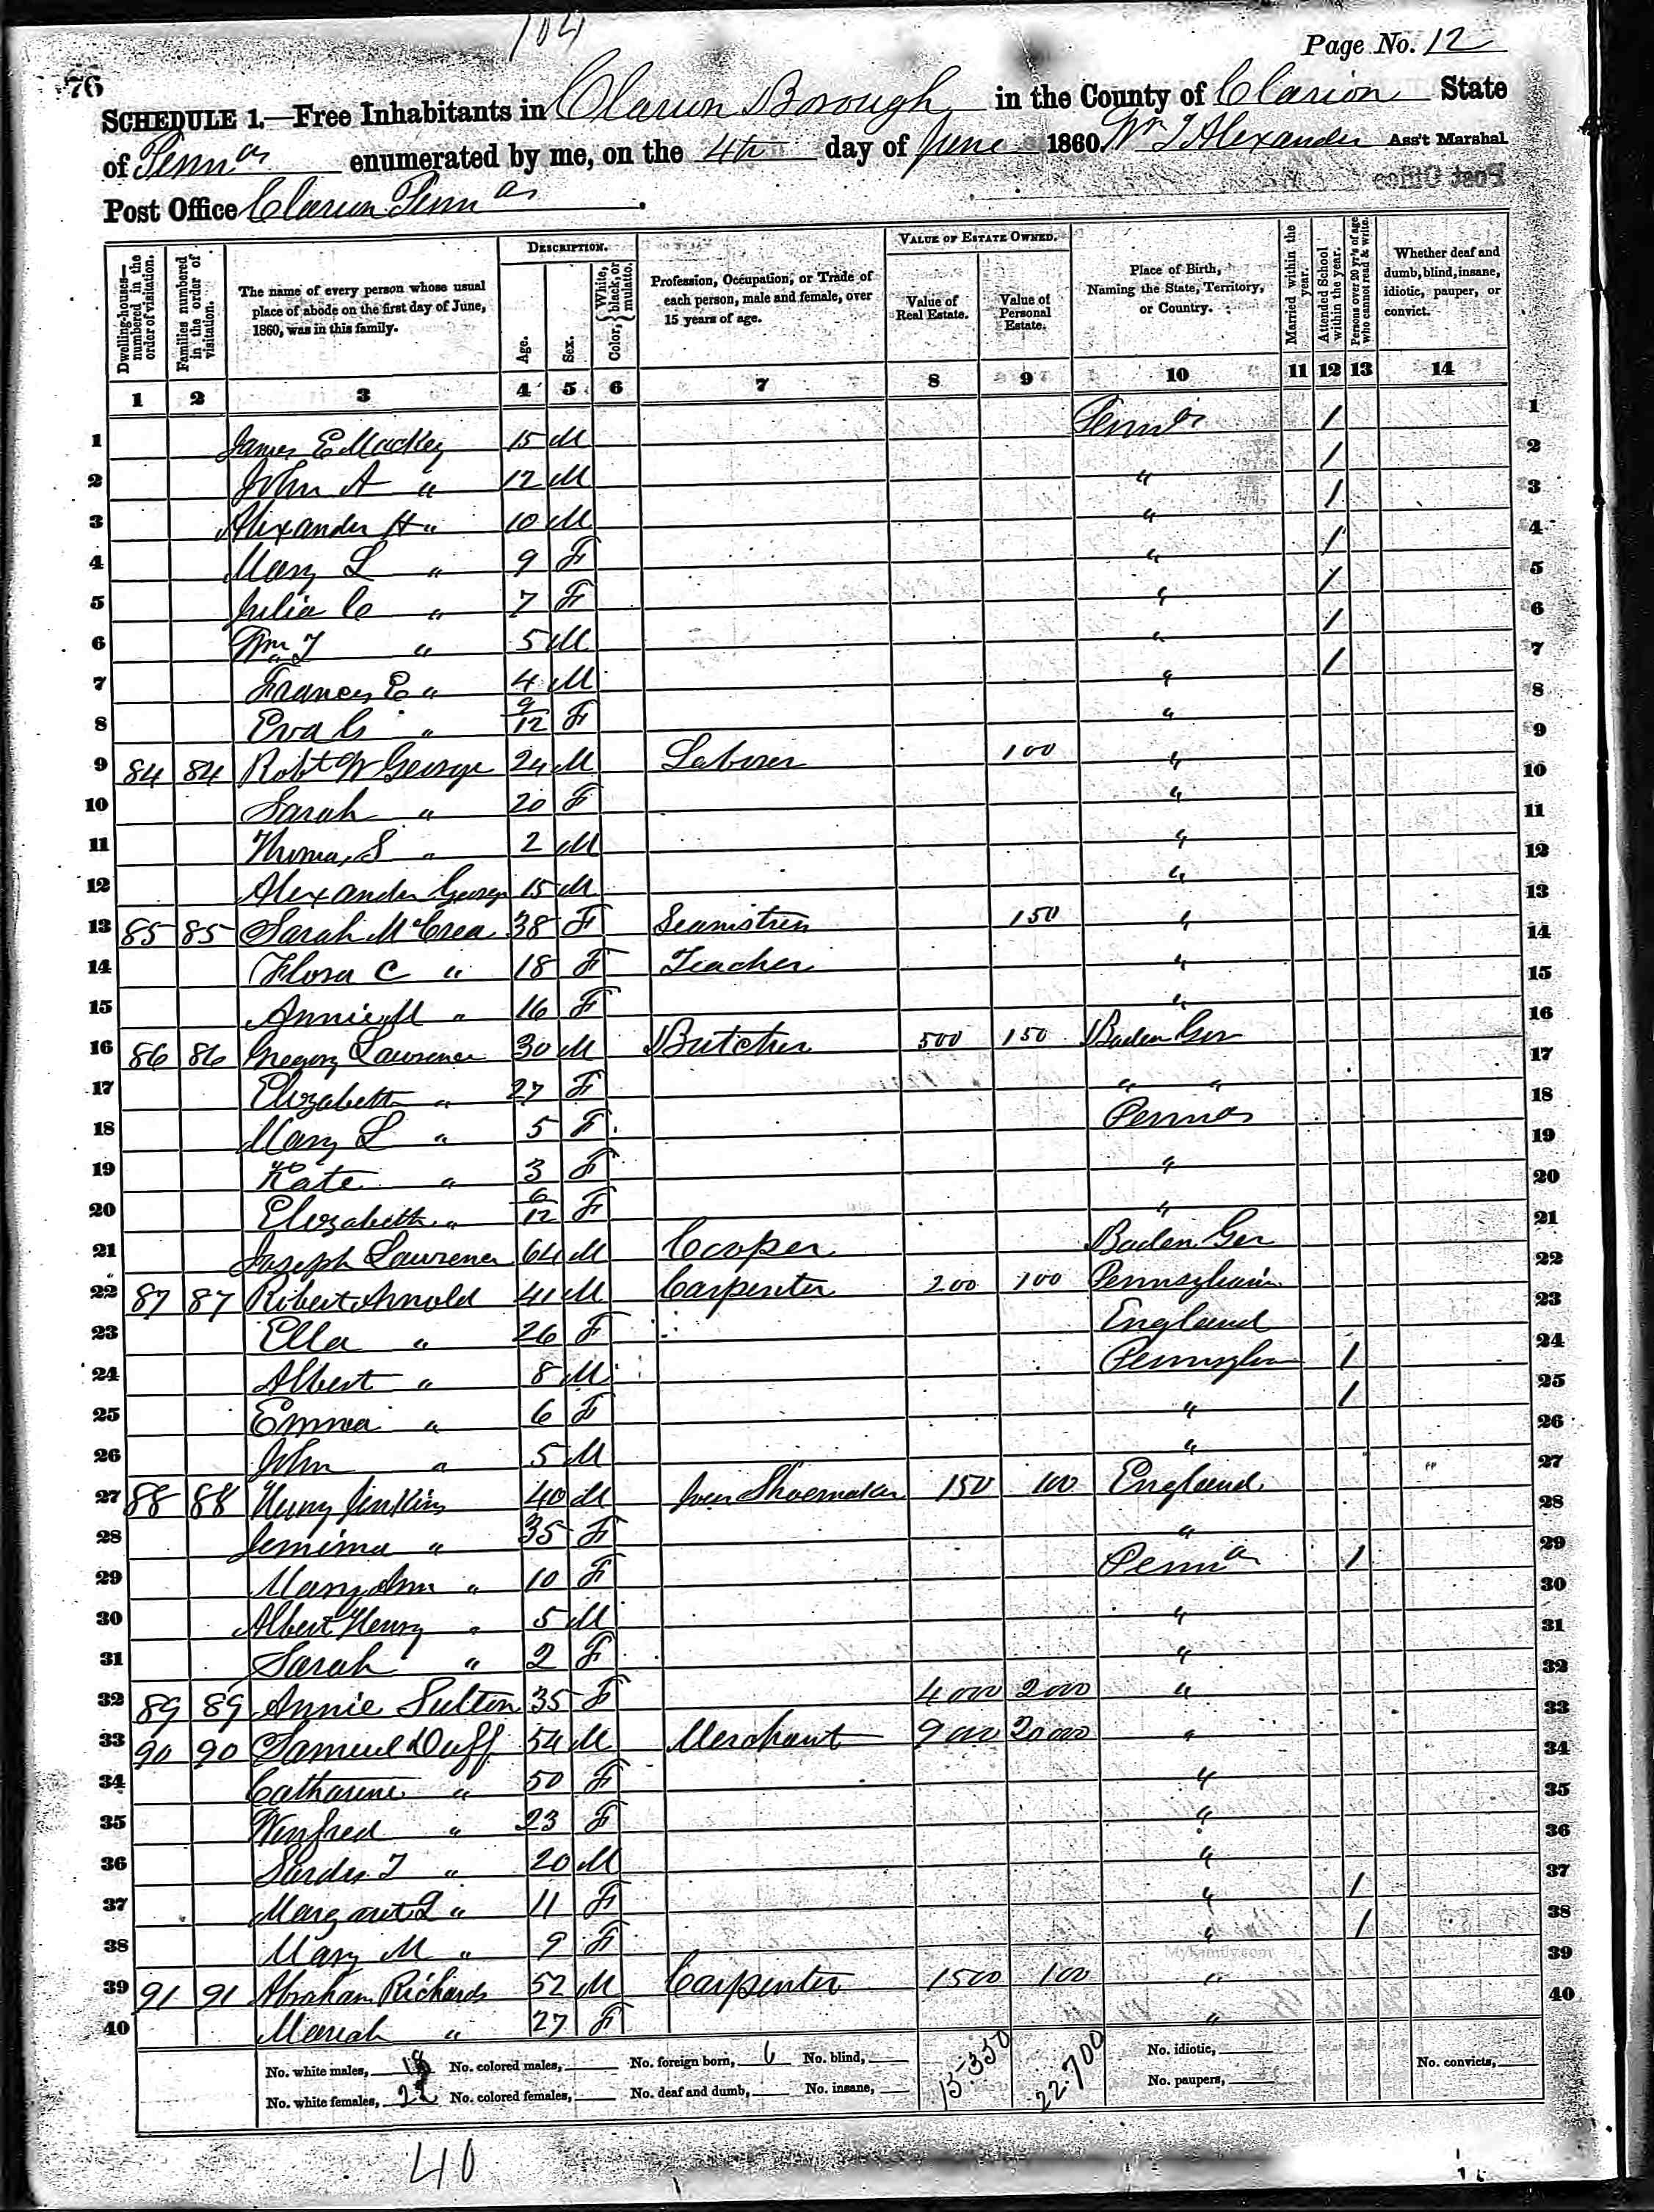 104
Page No. 12
76
SCHEDULE 1.—Free Inhabitants in Clarion Borough in the County of Clarion State
of Penna enumerated by me, on the 4th day of June 1860. Wm T Alexander Ass't Marshal
Post Office Clarion Penna
Dwelling-houses—numbered in the order of visitation.
Families numbered in the order of visitation.
The name of every person whose usual place of abode on the first day of June, 1860, was in this family.
DESCRIPTION.
Age.
Sex.
Color, {White, black, or mulatto.
Profession, Occupation, or Trade of each person, male and female, over 15 years of age.
VALUE OF ESTATE OWNED.
Value of Real Estate.
Value of Personal Estate.
Place of Birth, Naming the State, Territory, or Country.
Married within the year.
Attended School within the year.
Persons over 20 y'rs of age who cannot read & write.
Whether deaf and dumb, blind, insane, idiotic, pauper, or convict.
1 2 3 4 5 6 7 8 9 10 11 12 13 14
1 James E Mackley 15 M Penna / 1
2 John A " 12 M " / 2
3 Alexander H " 10 M " / 3
4 Mary L " 9 F " / 4
5 Julia C " 7 F " / 5
6 Wm T " 5 M " / 6
7 Frances E " 4 M " / 7
8 Eva G " 9/12 F " 8
9 84 84 Robt W George 24 M Laborer 100 " 9
10 Sarah " 20 F " 10
11 Thomas S " 2 M " 11
12 Alexander George 15 M " 12
13 85 85 Sarah McCrea 38 F Seamstress 150 " 13
14 Flora C " 18 F Teacher " 14
15 Annie M " 16 F " 15
16 86 86 Gregory Lawrence 30 M Butcher 500 150 Baden Ger 16
17 Elizabeth " 27 F " " 17
18 Mary L " 5 F Penna 18
19 Kate " 3 F " 19
20 Elizabeth " 6/12 F " 20
21 Joseph Lawrence 64 M Cooper Baden Ger 21
22 87 87 Robert Arnold 41 M Carpenter 200 100 Pennsylvania 22
23 Ella " 26 F England 23
24 Albert " 8 M / 24
25 Emma " 6 F " / 25
26 John " 5 M " 26
27 88 88 Henry Jinkins 40 M Shoemaker 150 100 England 27
28 Jemima " 35 F " 28
29 Mary Ann " 10 F Penna / 29
30 Albert Henry " 5 M " 30
31 Sarah " 2 F " 31
32 89 89 Annie Sulton 35 F 4000 2000 " 32
33 90 90 Samuel Duff 54 M Merchant 9000 20000 " 33
34 Catharine " 50 F " 34
35 Winfred " 23 F " 35
36 T " 20 M " 36
37 Margaret " 11 F " / 37
38 Mary M " 9 F " / 38
MyFamily.com
39 91 91 Abraham Richards 52 M Carpenter 1500 100 " 39
40 Mariah " 27 F " 40
No. white males, 18 No. colored males, No. foreign born, 6 No. blind, 15350 22.700 No. idiotic, No. convicts,
No. white females, 22 No. colored females, No. deaf and dumb, No. insane, No. paupers,
40